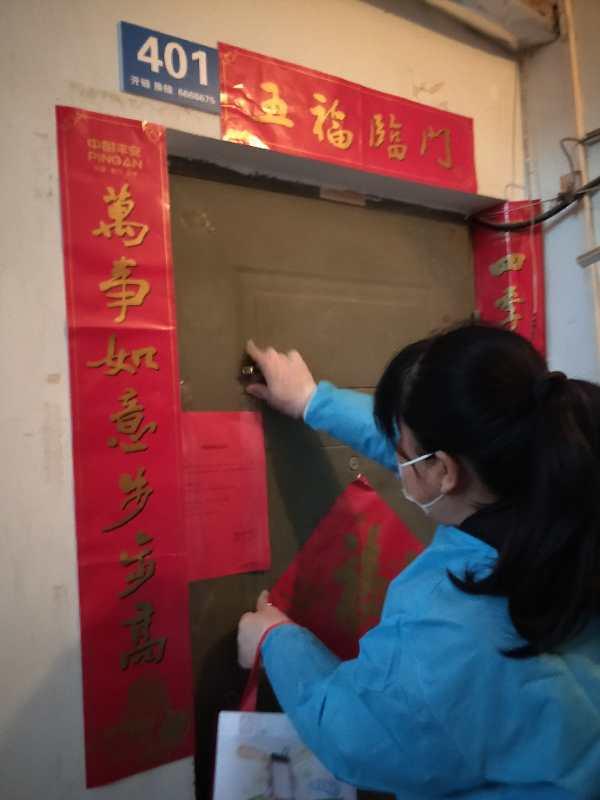 401
开锁 换锁 6666675
五福臨门
中国平安
PINGAN
萬事如意步步高
四季
福